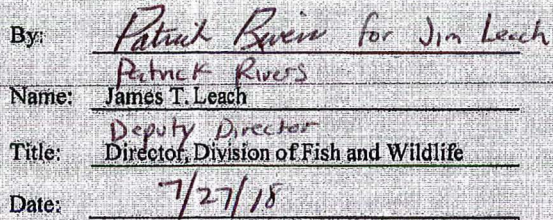 By: Patrick Rivers for Jim Leach
Patrick Rivers
Name: James T. Leach
Deputy Director
Title: Director, Division of Fish and Wildlife
Date: 7/27/18